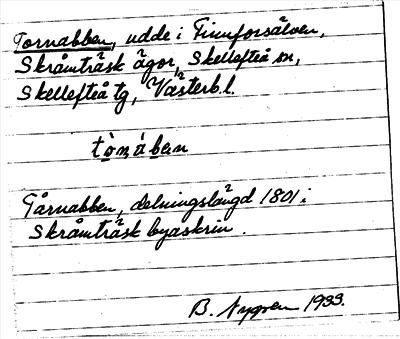 Tornabben, udde i Finnforsälven,
Skråmträsk ägor, Skellefteå sn,
Skellefteå tg, Västerb.l.
Tårnabben, delningslängd 1801 i
Skråmträsk byaskrin.
B. Nygren 1933.